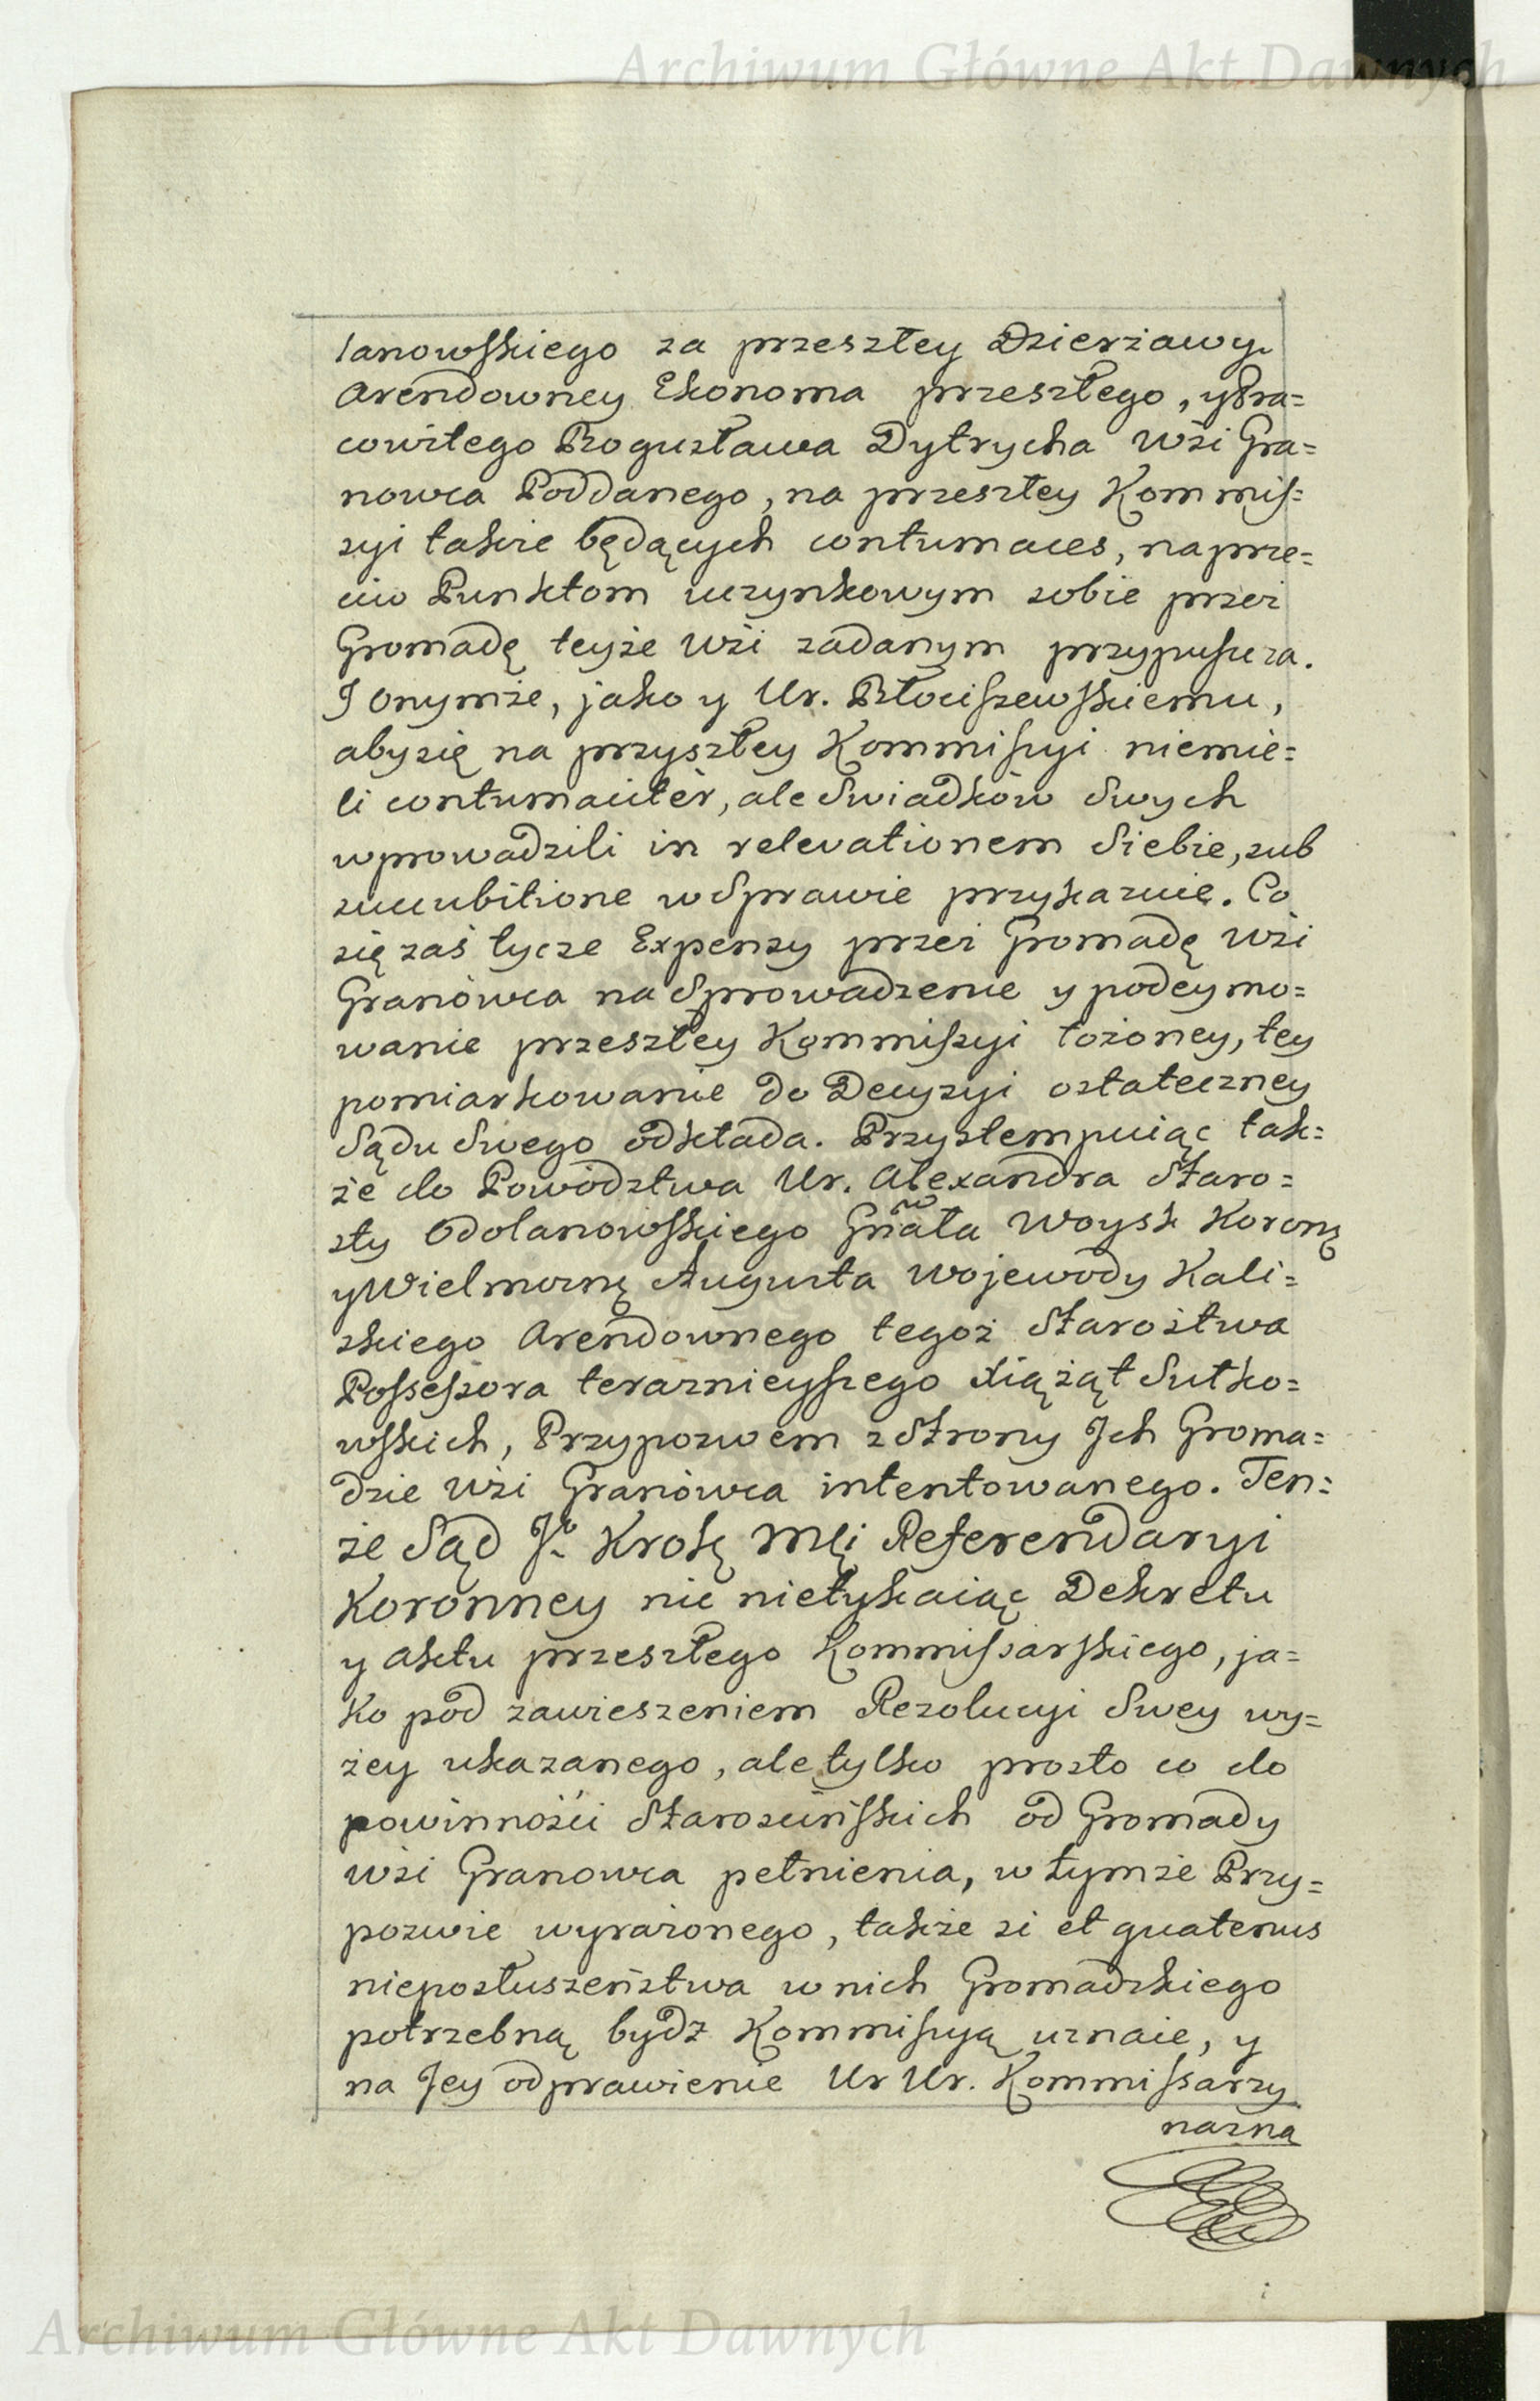 Archiwum Główne Akt Dawnych
lanowskiego za przeszłey Dzierżawy
Arendowney Ekonoma przeszłego, y Pra=
cowitego Bogusława Dytrycha wsi Gra=
nowca Poddanego, na przeszłey Kommis=
syi także będących contumaces, naprze=
ciw Punktom uczynkowym sobie przez
Gromadę teyże wsi zadanym przypuszcza.
I onymże, jako y Ur. Błociszewskiemu,
aby się na przyszłey Kommissyi niemie=
li contumaciter, ale Swiadków Swych
wprowadzili in relevationem Siebie, sub
succubitione w Sprawie przykazuie. Co
się zaś tycze Expensy przez Gromadę wsi
Granówca na Sprowadzenie y podeymo=
wanie przeszłey Kommissyi łożoney, tey
pomiarkowanie do Decyzyi ostateczney
Sądu Swego odkłada. Przystempuiąc tak=
że do Powództwa Ur. Alexandra Staro=
sty Odolanowskiego Gnrała Woysk Koronę
y Wielmożnę Augusta Wojewody Kali=
skiego Arendownego tegoż Starostwa
Possessora teraznieyszego Xiążąt Sułko=
wskich, Przypozwem z Strony Ich Groma=
dzie wsi Granówca intentowanego. Ten=
że Sąd JK Krolę Mći Referendaryi
Koronney nic nietykaiąc Dekretu
y Aktu przeszłego Kommissarskiego, ja=
ko pod zawieszeniem Rezolucyi Swey wy=
żey ukazanego, ale tylko prosto co do
powinności Starościńskich od Gromady
wsi Granowca pełnienia, w tymże Przy=
pozwie wyrażonego, także si et quatenus
nieposłuszeństwa w nich Gromadzkiego
potrzebną bydź Kommissyą uznaie, y
na Jey odprawienie Ur Ur. Kommissarzy
nazna
Archiwum Główne Akt Dawnych